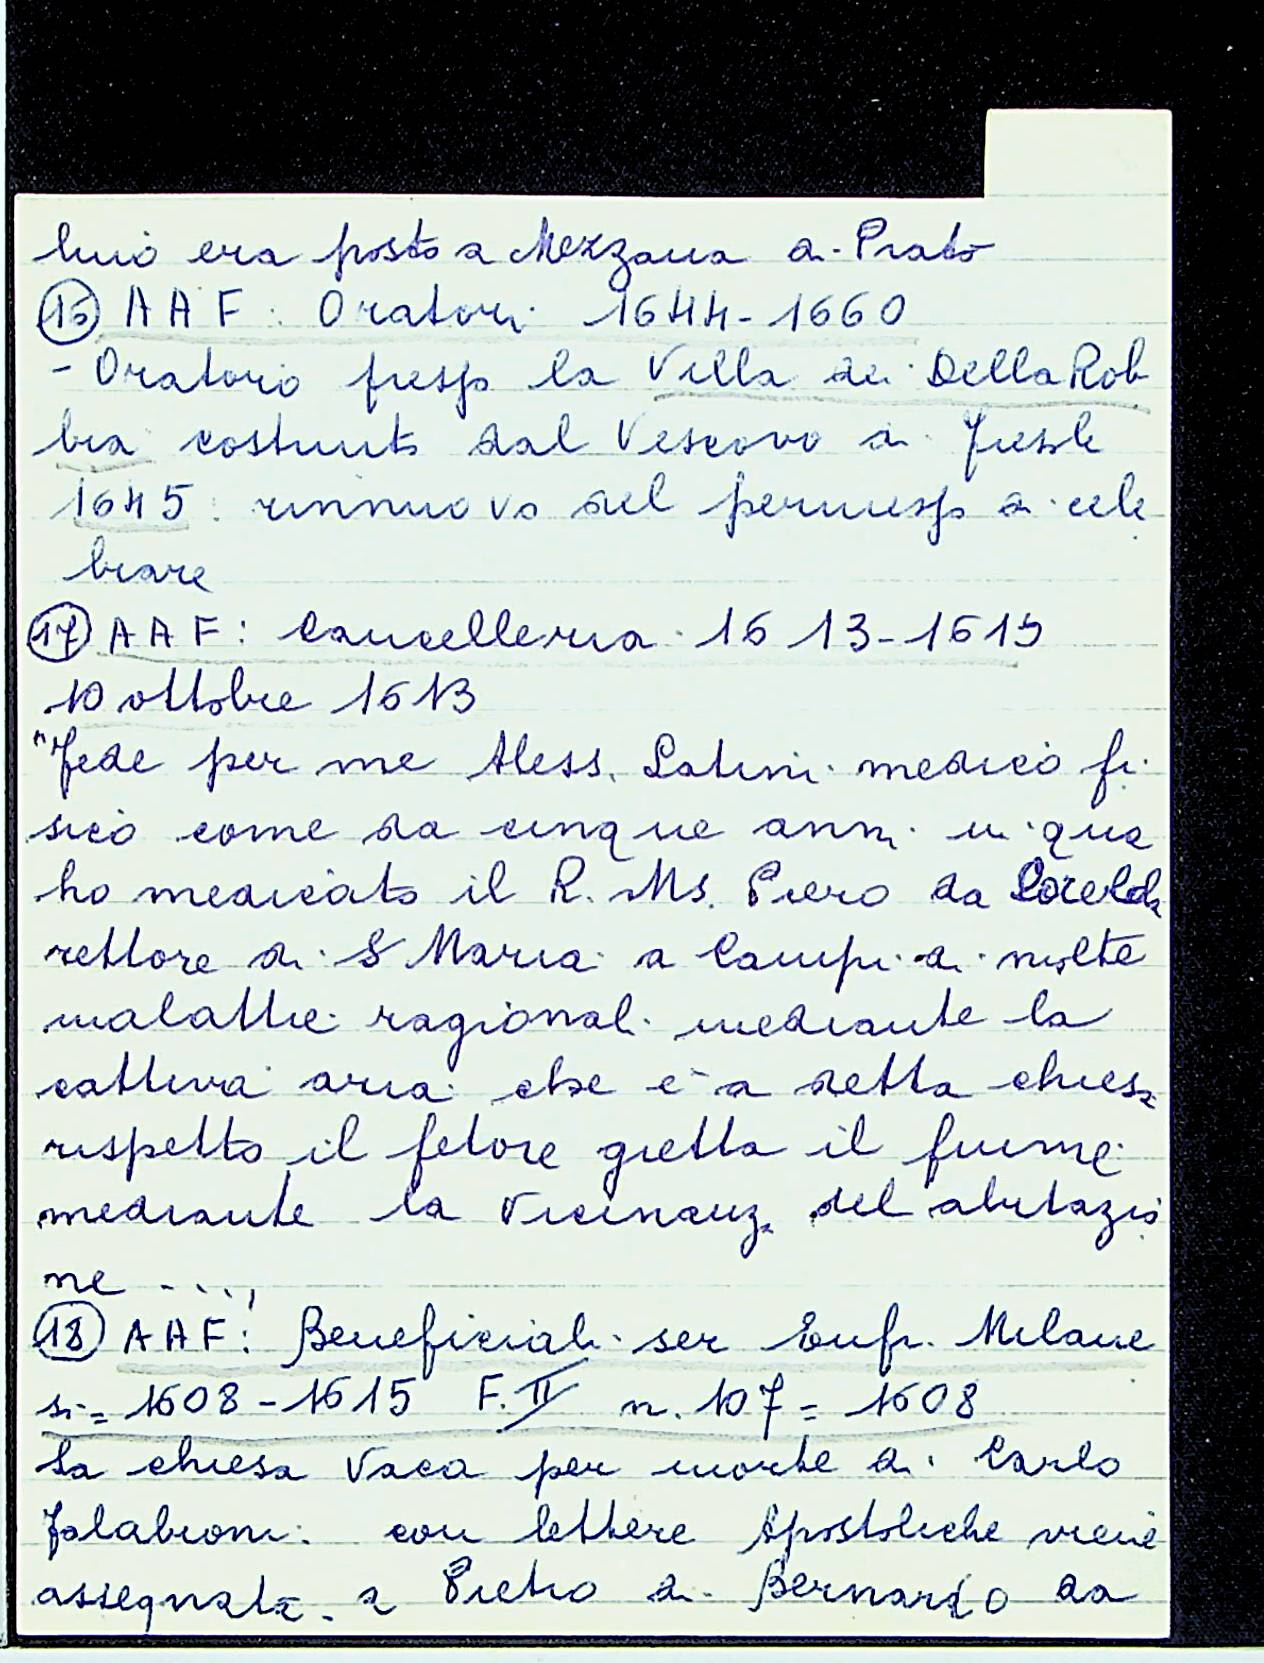 luio era posto a Mezzana di Prato
(16) AAF: Oratori 1644-1660
- Oratorio presso la Villa dei Della Rob
bia costruito dal Vescovo di Fiesole
1645: rinnuovo del permesso di cele
brare
(17) AAF: Cancelleria 1613-1619
10 ottobre 1613
"Fede per me Aless. Latini medico fi
sico come da cinque anni in qua
ho medicato il R. Ms. Piero da
rettore di S Maria a Campi di molte
malattie ragionali mediante la
cattiva aria che è a detta chiesa
rispetto il fetore gietta il fiume
mediante la vicinanza del abitazio
ne ....,
(18) AAF: Beneficiali ser Eufr. Milane
si = 1608-1615 F. II n. 107 = 1608
La chiesa vaca per morte di Carlo
Falabioni: con lettere Apostoliche viene
assegnata a Pietro di Bernardo da